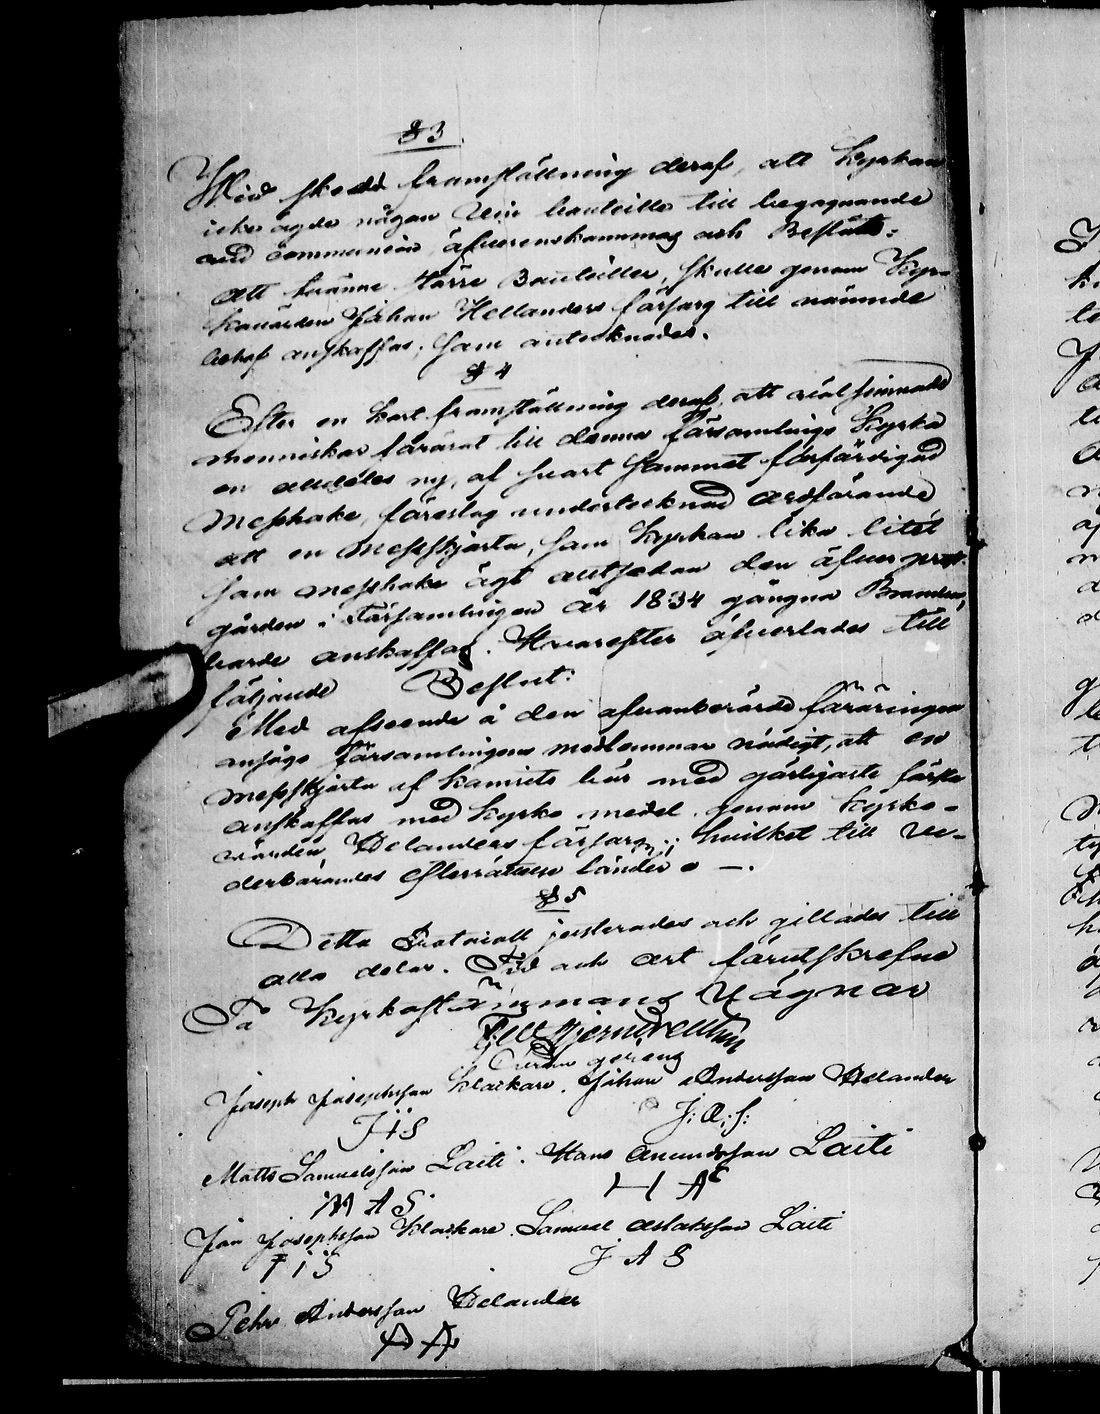 § 3.
Wid skedd framställning deraf, att Kyrkan
icke ägde någon Vin bouteille till begagnande
vid communion, öfverenskommos och Beslöts:
att tvänne större Bouteiller, skulle genom Kyr-
kovärden Johan Hellanders försorg till nämnde
behof anskaffas; som antecknades.
§ 4
Efter en kort framställning deraf, att välsinnade
menniskor förärat till denna församlings Kyrka
en alldeles ny, af svart sammet förfärdigad
Messhake, föreslog undertecknad ordförande
att en Messkjorta, som Kyrkan lika litet
som messhake ägt allt sedan den öfver prest-
gården i Församlingen år 1834 gångna Brand,
borde anskaffas. Hvarefter öfverlades till
följande Beslut:
Med afseende å den ofvanberörde föräringen
ansågo församlingens medlemmar nödigt, att en
messkjorta af kamrits bör med görligaste första
anskaffas med Kyrko medel genom Kyrko-
värden Delanders försorg; hvilket till ve-
derbörandes efterrättelse länder —.
§ 5
Detta Protocoll justerades och gillades till
alla delar. Tid och ort förutskrefne
På Kyrkostämmans Vägnar
Joseph Josephsson Klockare. Johan Andersson Delander
J I S J: A: S:
Matts Samuelsson Laiti. Hans Amundsson Laiti
M A S H A
Jon Josephsson Klockare. Samuel Aslaksson Laiti
J I S J A S
Pehr Andersson Delander